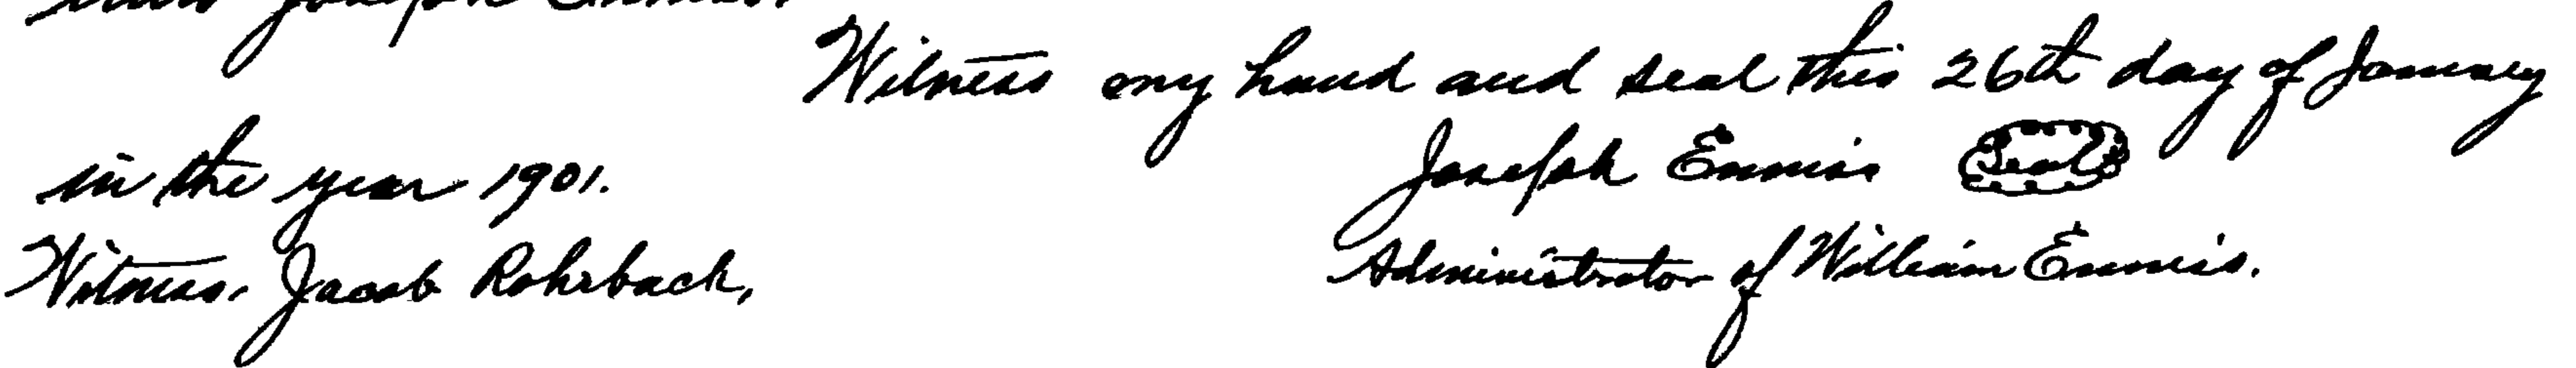 Joseph Ennis.
Witness my hand and seal this 26th day of January
in the year 1901. Joseph Ennis Seal
Witness, Jacob Rohrback, Administrator of William Ennis.